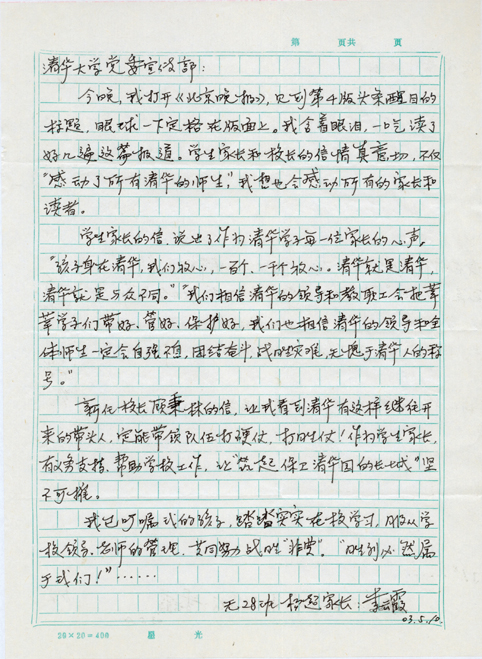 第 页共 页
清华大学党委宣传部：
今晚，我打开《北京晚报》，见到第4版头条醒目的
标题，眼球一下定格在版面上。我含着眼泪，一口气读了
好几遍这篇报道。学生家长和校长的信情真意切，不仅
“感动了所有清华的师生”，我想也会感动所有的家长和
读者。
学生家长的信，说出了作为清华学子每一位家长的心声。
“孩子身在清华，我们放心，一百个、一千个放心。清华就是清华，
清华就是与众不同。”“我们相信清华的领导和教职工会把莘
莘学子们带好、管好、保护好，我们也相信清华的领导和全
体师生一定会自强不息，团结奋斗，战胜灾难，无愧于清华人的称
号。”
新任校长顾秉林的信，让我看到清华有这样继往开
来的带头人，定能带领队伍打硬仗，打胜仗！作为学生家长，
有义务支持、帮助学校工作，让“筑起保卫清华园的长城”坚
不可摧。
我已叮嘱我的孩子，踏踏实实在校学习，服从学
校领导、老师的管理，共同努力战胜“非典”。“胜利必然属
于我们！”……
无28班 杨超家长：李云霞
03.5.10
20×20=400 星光